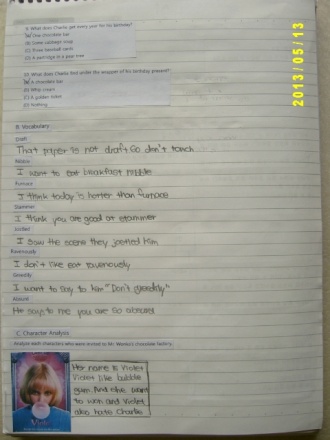 9. What does Charlie get every year for his birthday?
(A) One chocolate bar
(B) Some cabbage soup
(C) Three baseball cards
(D) A partridge in a pear tree
10. What does Charlie find under the wrapper of his birthday present?
(A) A chocolate bar
(B) Whip cream
(C) A golden ticket
(D) Nothing
2013/05/13
B. Vocabulary
Draft
That paper is not draft Go don't touch
Nibble
I want to eat breakfast nibble
Furnace
I think today is hotter than furnace
Stammer
I think you are good at stammer
Jostled
I saw the scene they jostled him
Ravenously
I don't like eat ravenously
Greedily
I want to say to him "Don't greedily"
Absurd
He says to me you are so absurd
C. Character Analysis
Analyze each characters who were invited to Mr. Wonka's chocolate factory.
Her name is Violet
Violet like bubble
gum. And she want
to win and Violet
also hate Charlie
Violet